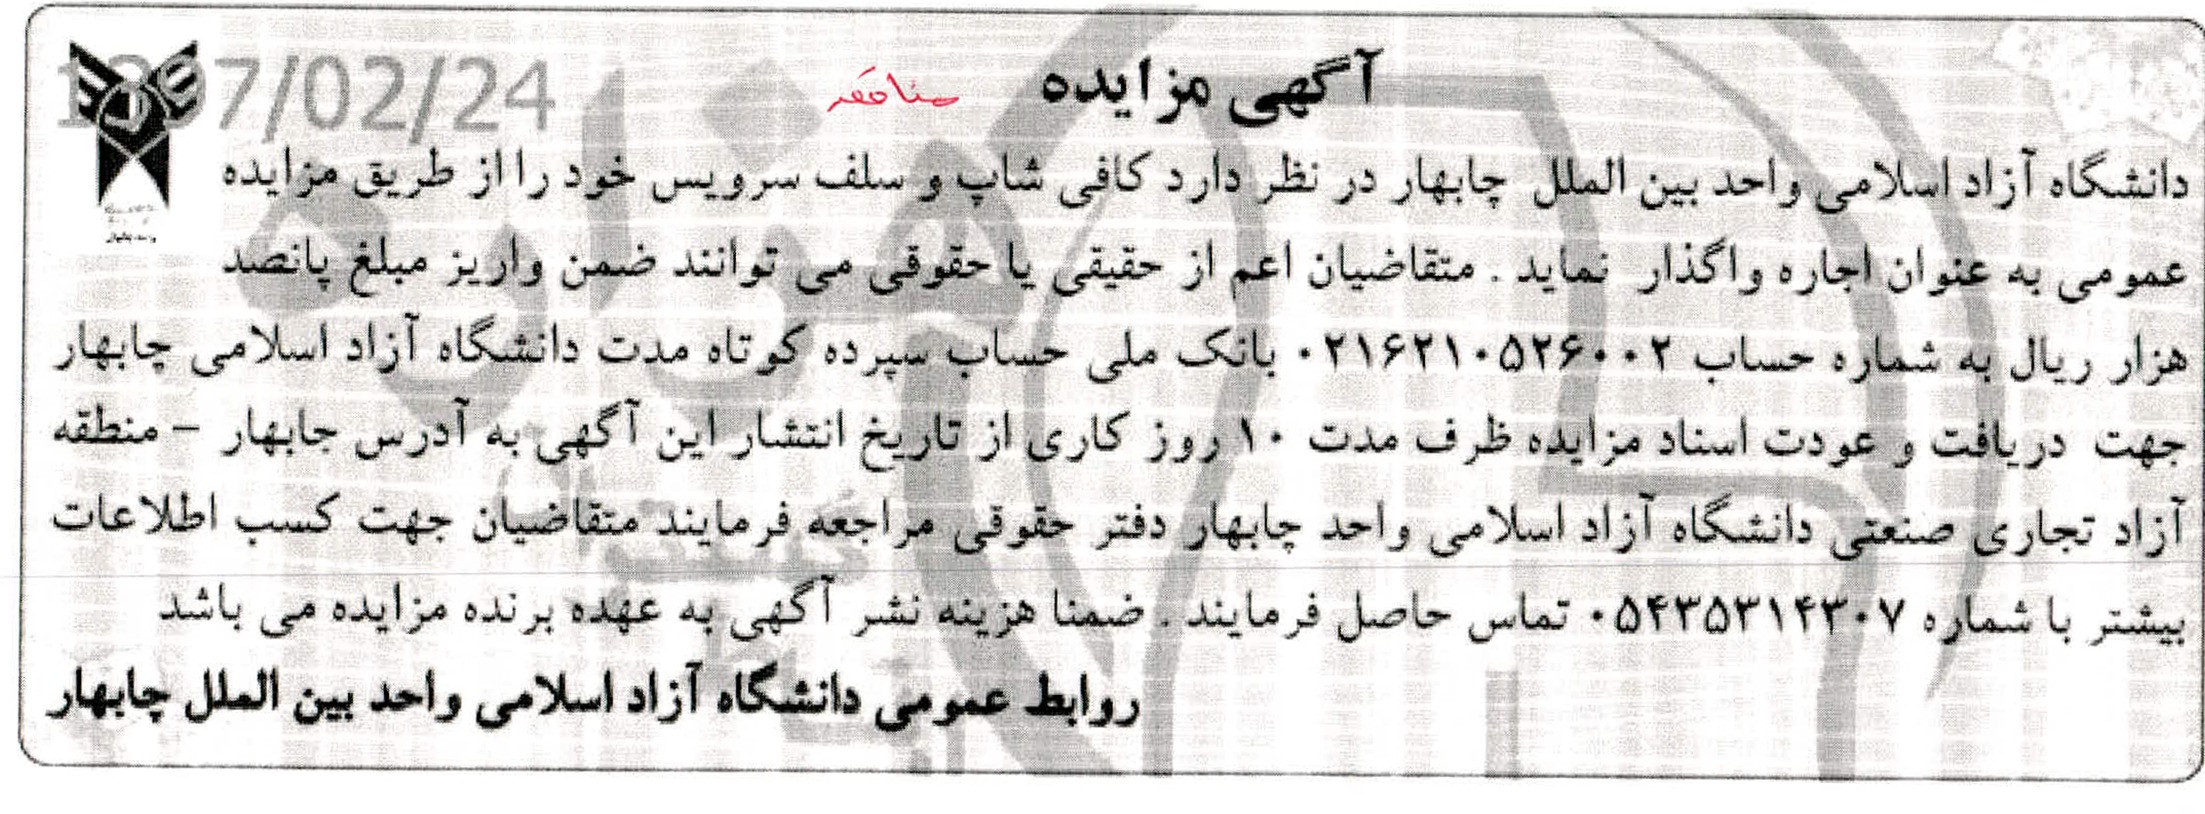 1397/02/24
آگهی مزایده
مناقصه
دانشگاه آزاد اسلامی واحد بین الملل چابهار در نظر دارد کافی شاپ و سلف سرویس خود را از طریق مزایده
عمومی به عنوان اجاره واگذار نماید . متقاضیان اعم از حقیقی یا حقوقی می توانند ضمن واریز مبلغ پانصد
هزار ریال به شماره حساب ۰۲۱۶۲۱۰۵۲۶۰۰۲ بانک ملی حساب سپرده کوتاه مدت دانشگاه آزاد اسلامی چابهار
جهت دریافت و عودت اسناد مزایده ظرف مدت ۱۰ روز کاری از تاریخ انتشار این آگهی به آدرس چابهار – منطقه
آزاد تجاری صنعتی دانشگاه آزاد اسلامی واحد چابهار دفتر حقوقی مراجعه فرمایند متقاضیان جهت کسب اطلاعات
بیشتر با شماره ۰۵۴۳۵۳۱۴۳۰۷ تماس حاصل فرمایند . ضمنا هزینه نشر آگهی به عهده برنده مزایده می باشد
روابط عمومی دانشگاه آزاد اسلامی واحد بین الملل چابهار